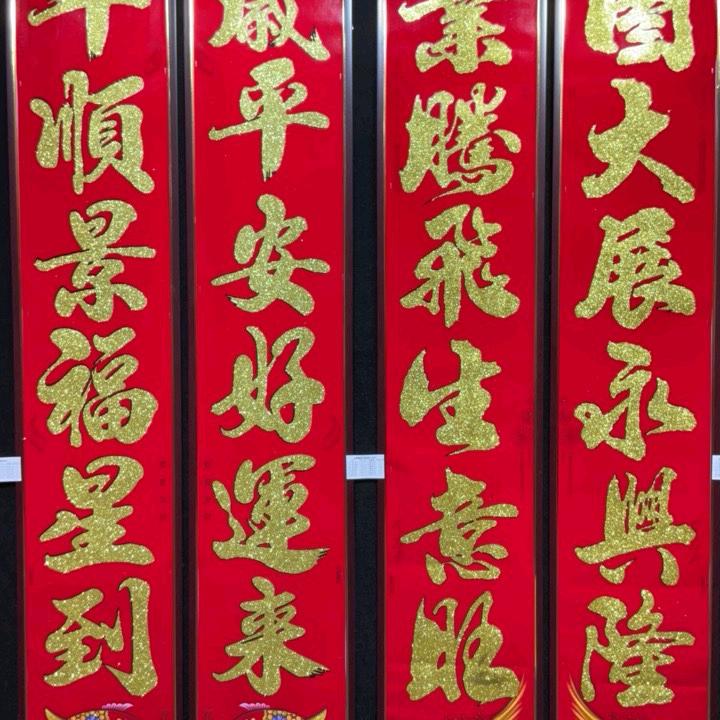 圖大展永興隆
業騰飛生意旺
歲平安好運来
年順景福星到